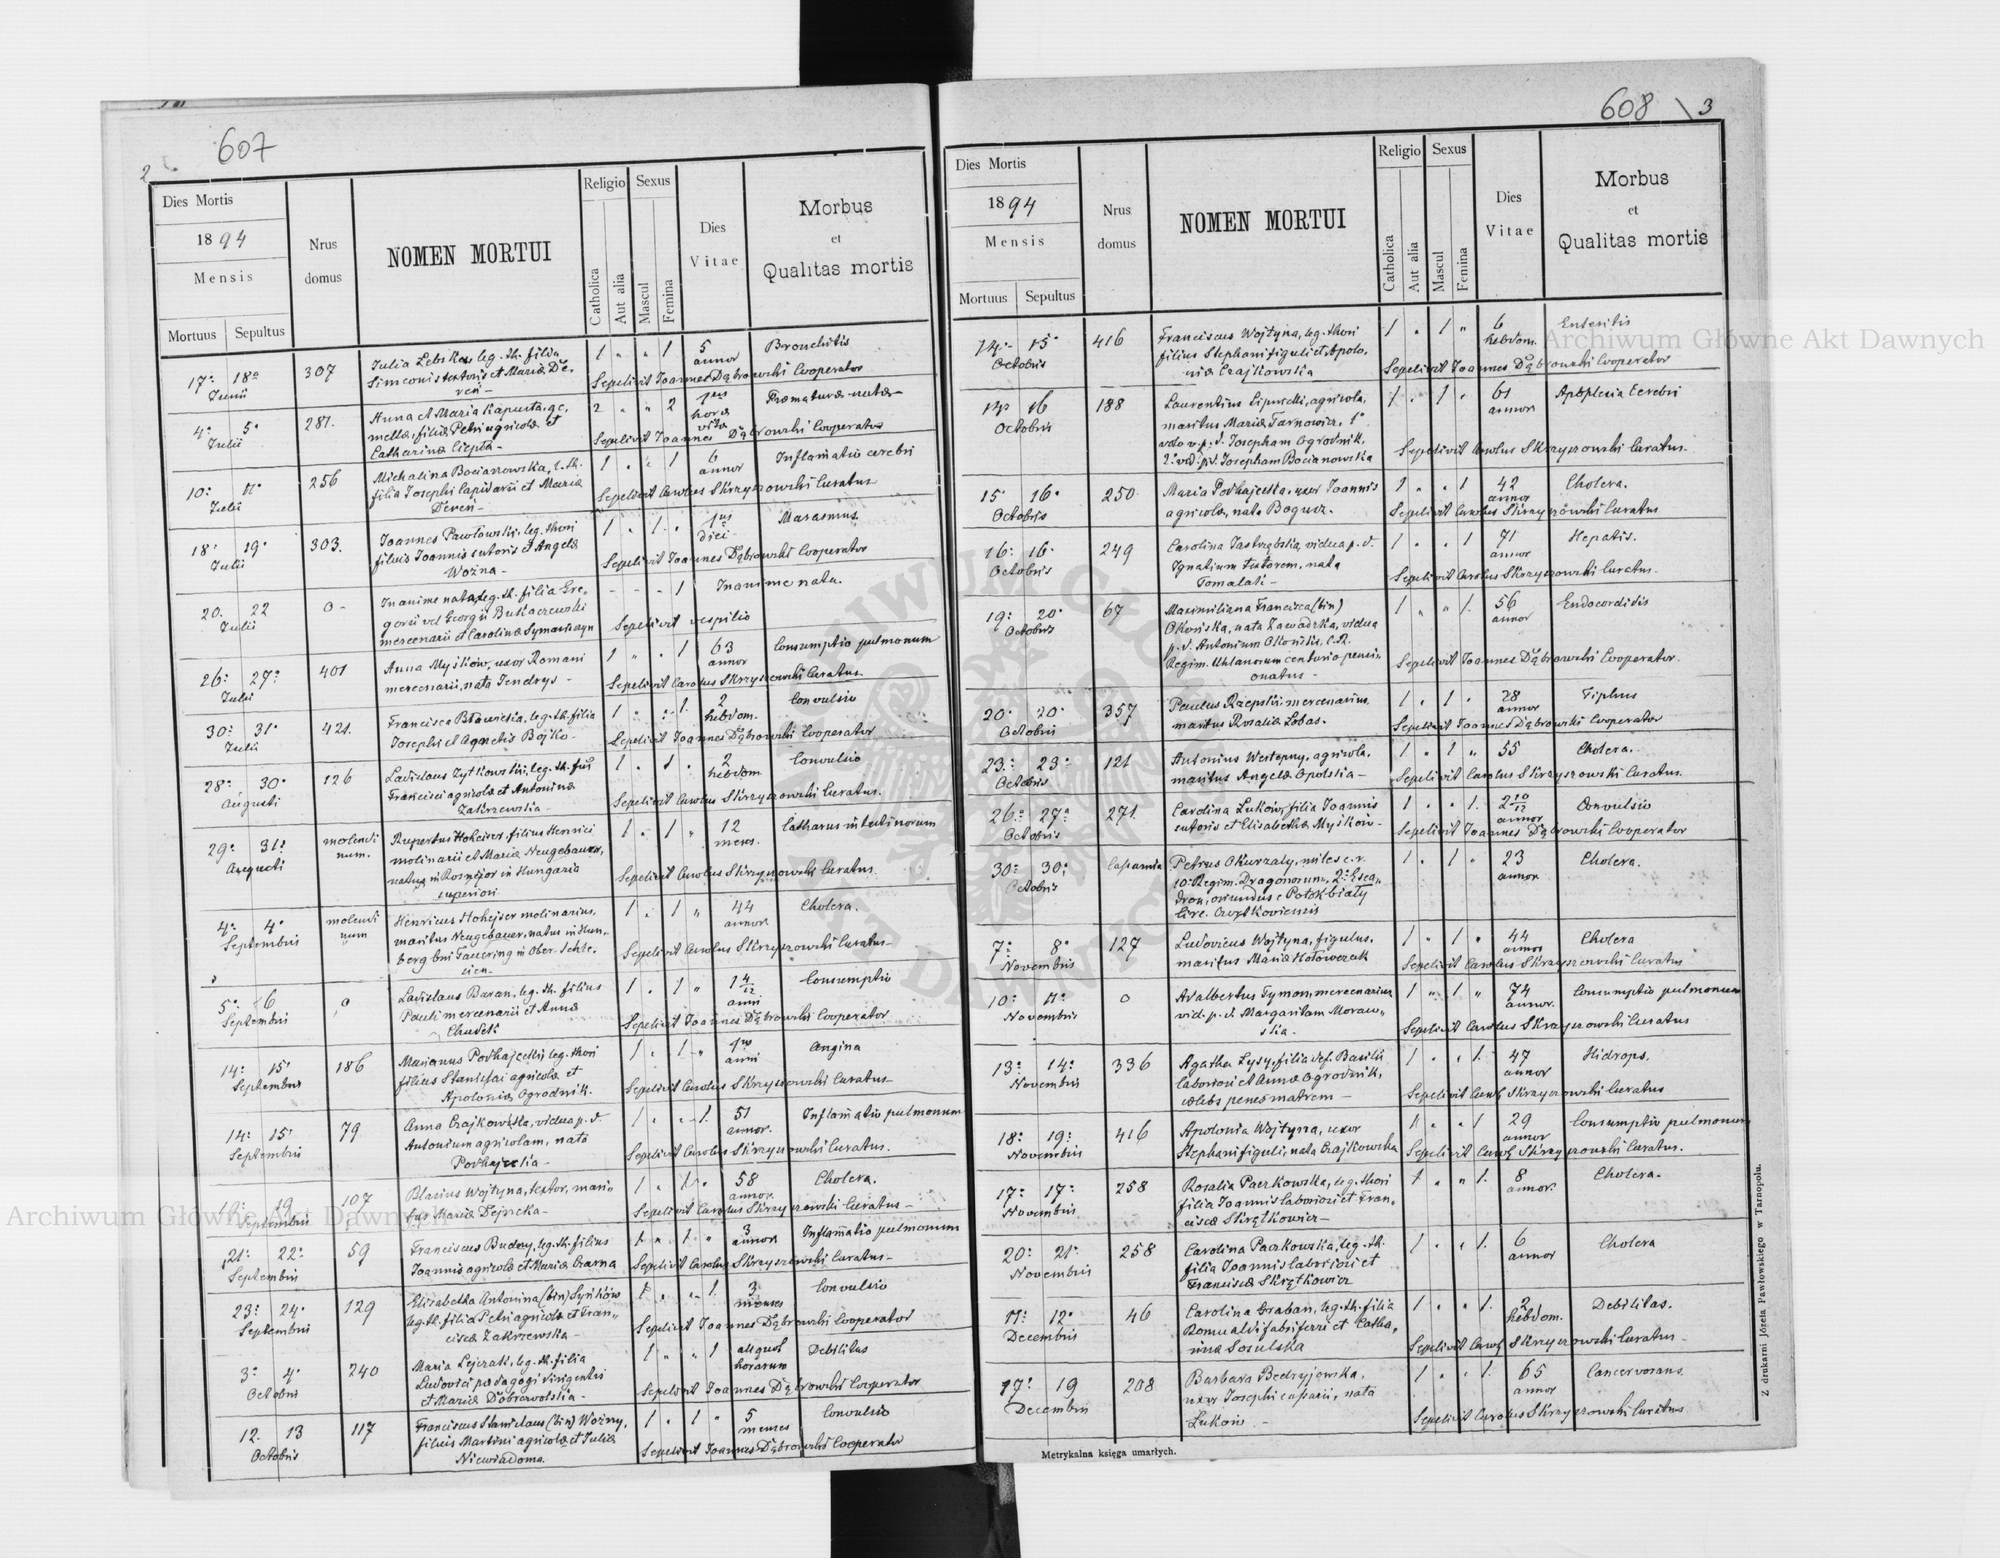 607
2
Dies Mortis
1894
Mensis
Mortuus Sepultus
Nrus
domus
NOMEN MORTUI
Religio
Catholica
Aut alia
Sexus
Mascul
Femina
Dies
Vitae
Morbus
et
Qualitas mortis
17. 18a 307 Julia leg. th. filia 1 " " 1 5 Bronchitis
Junii Simeonis textoris et Mariæ De- annor
ren Sepelivit Joannes Dąbrowski Cooperator
4. 5. 281. Anna et Maria Kapusta, ge, 2 " " 2 Præmaturæ natæ
Julii mellæ, filiæ Petri agricolæ et horæ
Catharinæ Ciepła Sepelivit Joannes Dąbrowski Cooperator
10. 11. 256 Michalina Bocianowska, l. th. 1 . " 1 6 Inflamatio cerebri
Julii filia Josephi lapidarii et Mariæ annor
Deren Sepelivit Carolus Skrzyszowski Curatus
18. 19. 303. Joannes Pawłowski, leg. thori 1 . 1 . 1us Marasmus
Julii filius Joannis sutoris et Angelæ diei
Woźna - Sepelivit Joannes Dąbrowski Cooperator
20. 22 0 - Inanime nata, leg. th. filia Gre- - - - 1 Inanime nata.
Julii gorii vel Georgii Bukaczewski
mercenarii et Carolinæ Sepelivit vespilio
26. 27. 401 Anna Myśków, uxor Romani 1 " . 1 63 Consumptio pulmonum
Julii mercenarii, nata Jendrys - annor
Sepelivit Carolus Skrzyszowski Curatus.
30. 31. 421. Francisca leg. th. filia 1 " " 1. 2 Convulsio
Julii Josephi et Agnetis Bojko - hebdom.
Sepelivit Joannes Dąbrowski Cooperator
28. 30. 126 Ladislaus Zytkowski, leg. th. 1 . 1 . 2 Convulsio
Augusti Francisci agricolæ et Antoninæ hebdom
Zakrzewska - Sepelivit Carolus Skrzyszowski Curatus.
29. 31. molendi Rupertus Hoheiser, filius Henrici 1 . 1 " 12 Catharus intestinorum
Augusti num. molinarii et Mariæ Neugebauer, mens.
natus in in Hungaria
superiori Sepelivit Carolus Skrzyszowski Curatus
4. 4. molendi Henricus Hohejser molinarius, 1 . 1 " 44 Cholera.
Septembris num maritus Neugebauer, natus in Hun-
berg bei in Ober Schle- annor
sien Sepelivit Carolus Skrzyszowski Curatus
5. 6 0 Ladislaus Baran, leg. th. filius 1 . 1 " 1 4/12 Consumptio
Septembris Pauli mercenarii et Annæ anni
Sepelivit Joannes Dąbrowski Cooperator
14. 15. 186 Marianus Podhajecki leg. thori 1 . 1 . Angina
Septembris filius Stanislai agricolæ et anni
Apoloniæ Ogrodnik. Sepelivit Carolus Skrzyszowski Curatus
14. 15. 79 Anna Czajkowska, vidua p. d. 1 . . 1. 51 Inflamatio pulmonum
Septembris Antonium agricolam, nata annor.
Podhajecka - Sepelivit Carolus Skrzyszowski Curatus.
19. 107 Blasius Wojtyna, textor, mari- 1 . 1 . 58 Cholera.
Septembris tus Mariæ annor.
Sepelivit Carolus Skrzyszowski Curatus -
21. 22. 59 Franciscus Budny, leg. th. filius 1 " 1 " 3 Inflamatio pulmonum
Septembris Joannis agricolæ et Mariæ Czarna annor
Sepelivit Carolus Skrzyszowski Curatus -
23. 24. 129 Elisabetha Antonina (bin) 1 . . 1. 3 Convulsio
Septembris leg. th. filia Petri agricolæ et Fran- menses
ciscæ Zakrzewska - Sepelivit Joannes Dąbrowski Cooperator
3. 4. 240 Maria Lejczak, leg. th. filia 1 " " 1 aliquot Debilitas
Octobris Ludovici pædagogi dirigentis horarum
et Mariæ Dobrowolska - Sepelivit Joannes Dąbrowski Cooperator
12. 13 117 Franciscus Stanislaus (bin) Woźny, 1 . 1 " 5 Convulsio
Octobris filius Martini agricolæ et Juliæ menses
Niewiadoma. Sepelivit Joannes Dąbrowski Cooperator
608 3
Dies Mortis
1894
Mensis
Mortuus Sepultus
Nrus
domus
NOMEN MORTUI
Religio
Catholica
Aut alia
Sexus
Mascul
Femina
Dies
Vitae
Morbus
et
Qualitas mortis
14. 15. 416 Franciscus Wojtyna, leg. thori 1 . 1 " 6 Enteritis
Octobris filius Stephani figuli et Apolo- hebdom.
niæ Czajkowska Sepelivit Joannes Dąbrowski Cooperator
16 188 Laurentius Lipnicki, agricola, 1 . 1 . 61 Apoplexia Cerebri
Octobris maritus Mariæ Tarnowicz, 1o annor
voto v. p. d. Josepham Ogrodnik,
2. vot. p. d. Josepham Bocianowska Sepelivit Carolus Skrzyszowski Curatus.
15. 16. 250. Maria Podhajecka, uxor Joannis 1 . . 1 42 Cholera.
Octobris agricolæ, nata Bogucz. annor
Sepelivit Carolus Skrzyszowski Curatus
16. 16. 249 Carolina Jastrzębska, vidua p. d. 1 . . 1 71 Hepatis.
Octobris Ignatium textorem, nata annor
Tomalak - Sepelivit Carolus Skrzyszowski Curatus.
19. 20. 67 Maximiliana Francisca (bin) 1 " " 1. 56 Endocorditis
Octobris Okońska, nata Zawadzka, vidua annor
p. d. Antonium Okoński, C. R.
Regim. Uhlanorum centurio pensi-
onatus - Sepelivit Joannes Dąbrowski Cooperator.
20. 20. 357 Paulus Rzepski mercenarius, 1 . 1 . 28 Tiphus
Octobris maritus Rosaliæ Lobas. annor
Sepelivit Joannes Dąbrowski Cooperator
23. 23. 121 Antonius Westopny, agricola, 1 . 1 " 55 Cholera.
Octobris maritus Angelæ Opolska - Sepelivit Carolus Skrzyszowski Curatus.
26. 27. 271. Carolina Luków, filia Joannis 1 . . 1. 2 10/12 Convulsio
Octobris sutoris et Elisabethæ Myśków - annor
Sepelivit Joannes Dąbrowski Cooperator
30. 30. Petrus Okurzały, miles c. r. 1 . 1 " 23 Cholera.
Octobris 10. Regim. Dragonorum, 2. esca- annor
dron, oriundus e Potok biały
circ. Czortkoviensis
7. 8. 127 Ludovicus Wojtyna, figulus, 1 . 1 . 44 Cholera
Novembris maritus Mariæ Hołowczak annor
Sepelivit Carolus Skrzyszowski Curatus
10. 11. 0 Adalbertus Tymon, mercenarius 1 " 1 " 74 Consumptio pulmonum
Novembris vid. p. d. Margaritam Moraw- annor.
ska. Sepelivit Carolus Skrzyszowski Curatus
13. 14. 336 Agatha Łysy, filia def. Basilii 1 . . 1. 47 Hidrops.
Novembris laboriosi et Annæ Ogrodnik, annor
cælebs penes matrem - Sepelivit Carol Skrzyszowski Curatus
18. 19. 416 Apolonia Wojtyna, uxor 1 . . 1 29 Consumptio pulmonum
Novembris Stephani figuli, nata Czajkowska annor
Sepelivit Carol Skrzyszowski Curatus.
17. 17. 258 Rosalia Paczkowska, leg. thori 1 . " 1. 8 Cholera.
Novembris filia Joannis laboriosi et Fran- annor.
ciscæ Skrętkowicz -
20. 21. 258 Carolina Paczkowska, leg. th. 1 . . 1. 6 Cholera
Novembris filia Joannis laboriosi et annor
Franciscæ Skrętkowicz
11. 12. 46 Carolina Graban, leg. th. filia 1 . . 1. 2 Debilitas.
Decembris Romualdi fabri ferri et Catha- hebdom.
rinæ Sosulska Sepelivit Carol Skrzyszowski Curatus -
17. 19 208 Barbara Bedryjowska, 1 . . 1. 65 Cancer vorans.
Decembris uxor Josephi nata annor
Luków - Sepelivit Carolus Skrzyszowski Curatus
Metrykalna księga umarłych.
Z drukarni Józefa Pawłowskiego w Tarnopolu.
Archiwum Główne Akt Dawnych
Archiwum Główne Akt Dawnych